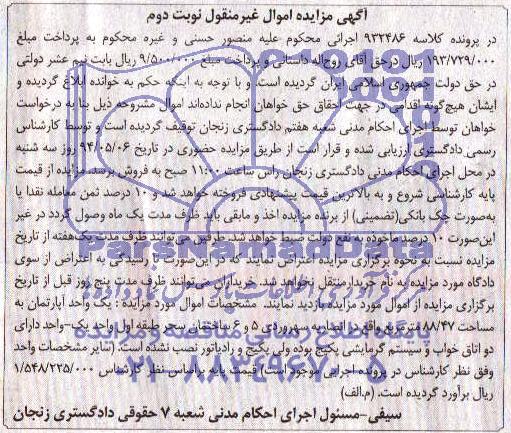 آگهی مزایده اموال غیرمنقول نوبت دوم
در پرونده کلاسه ۹۳۲۴۸۶ اجرائی محکوم علیه منصور حسنی و غیره محکوم به پرداخت مبلغ
۱۹۳/۷۲۹/۰۰۰ ریال درحق آقای روح‌اله داستانی و پرداخت مبلغ ۹/۵۰۰/۰۰۰ ریال بابت نیم عشر دولتی
در حق دولت جمهوری اسلامی ایران گردیده است. و با توجه به اینکه حکم به خوانده ابلاغ گردیده و
ایشان هیچ‌گونه اقدامی در جهت احقاق حق خواهان انجام نداده‌اند اموال مشروحه ذیل بنا به درخواست
خواهان توسط اجرای احکام مدنی شعبه هفتم دادگستری زنجان توقیف گردیده است و توسط کارشناس
رسمی دادگستری ارزیابی شده و قرار است از طریق مزایده حضوری در تاریخ ۹۴/۰۵/۰۶ روز سه شنبه
در محل اجرای احکام مدنی دادگستری زنجان راس ساعت ۱۱:۰۰ صبح به فروش برسد مزایده از قیمت
پایه کارشناسی شروع و به بالاترین قیمت پیشنهادی فروخته خواهد شد و ۱۰ درصد ثمن معامله نقدا یا
به‌صورت چک بانکی(تضمینی) از برنده مزایده اخذ و مابقی باید ظرف مدت یک ماه وصول گردد در غیر
این‌صورت ۱۰ درصد ماخوذه به نفع دولت ضبط خواهد شد. طرفین می‌توانند ظرف مدت یک‌هفته از تاریخ
مزایده نسبت به نحوه برگزاری مزایده اعتراض نمایند که در این‌صورت تا رسیدگی به اعتراض از سوی
دادگاه مورد مزایده به نام خریدار منتقل نخواهد شد. خریداران می‌توانند ظرف مدت پنج روز قبل از تاریخ
برگزاری مزایده از اموال مورد مزایده بازدید نمایند. مشخصات اموال مورد مزایده : یک واحد آپارتمان به
مساحت ۸۸/۴۷ مترمربع واقع در انصاریه سهروردی ۵ و ۶ ساختمان سحر طبقه اول واحد یک-واحد دارای
دو اتاق خواب و سیستم گرمایشی پکیج بوده ولی پکیج و رادیاتور نصب نشده است. (سایر مشخصات واحد
وفق نظر کارشناس در پرونده اجرایی موجود است) قیمت پایه براساس نظر کارشناس ۱/۵۴۸/۲۲۵/۰۰۰
ریال برآورد گردیده است. (م.الف)
سیفی-مسئول اجرای احکام مدنی شعبه ۷ حقوقی دادگستری زنجان
ParsNamadData